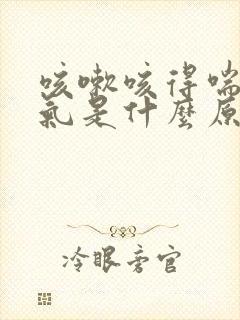 咳嗽咳得喘
氣是什麼原
冷眼旁官